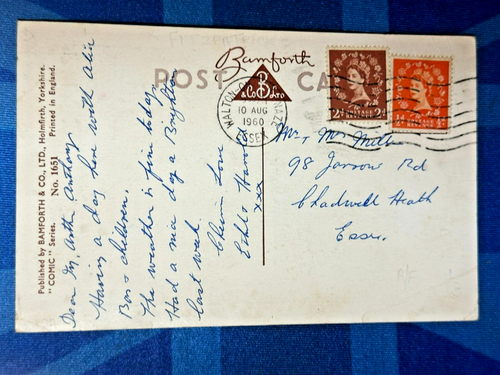 Published by BAMFORTH & CO., LTD., Holmfirth, Yorkshire.
"COMIC" Series. No. 1651 Printed in England.
Bamforth
POST CA
B
& Co Ltd
WALTON-
NAZE
10 AUG
1960
ESSEX
2D 2D
Dear M, Arth Anthony
Having a day here with Alie
Bon & children.
The weather is fine today
Had a nice day a Brighton
last week.
Cherio Love
Ethl & Harold
xxx
Mr, & Mrs
98 Jarrow Rd
Chadwell Heath
Essex.